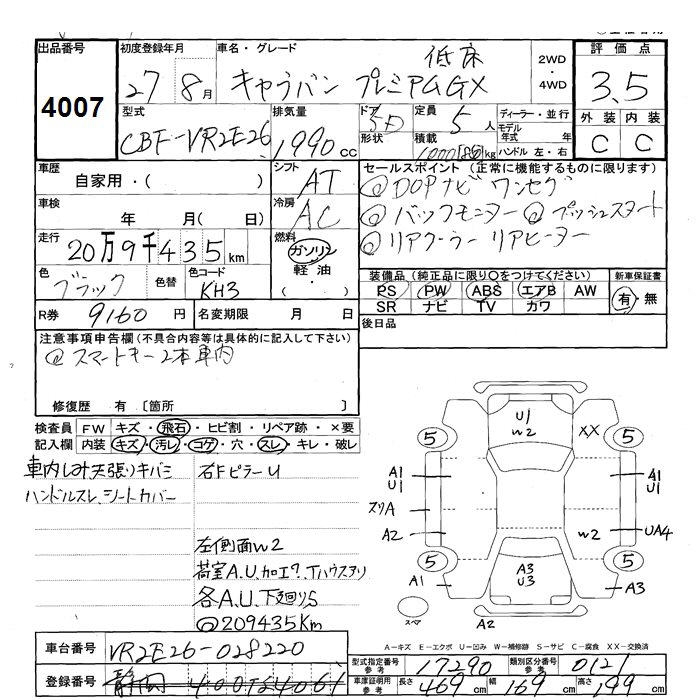 出品番号
4007
初度登録年月
27 8月
車名・グレード
低床
キャラバン プレミアムGX
2WD
・
4WD
評価点
3.5
外装 内装
C C
型式
CBF-VR2E26
排気量
1990cc
ドア
5D
形状
定員
5人
積載
kg
ディーラー・並行
モデル
年式 年
ハンドル 左・右
車歴
自家用・( )
シフト
AT
車検
年 月( 日)
冷房
AC
走行
20万9千435km
燃料
ガソリン
軽油
・( )
色
ブラック
色替
色コード
KH3
R券 9160円
名変期限 月 日
セールスポイント(正常に機能するものに限ります)
◎DOPナビ ワンセグ
◎バックモニター ◎プッシュスタート
◎リアクーラー リアヒーター
装備品(純正品に限り○をつけてください)
PS PW ABS エアB AW
SR ナビ TV カワ
新車保証書
有・無
後日品
注意事項申告欄(不具合内容等は具体的に記入して下さい)
◎スマートキー2本車内
修復歴 有[箇所 ]
検査員 FW キズ・飛石・ヒビ割・リペア跡・×要
記入欄 内装 キズ・汚レ・コゲ・穴・スレ・キレ・破レ
車内しみ天張りキバミ
ハンドルスレ、シートカバー
右FピラーU
左側面W2
荷室A.U.加工ア.Tハウスアリ
各A.U.下廻りS
◎209435Km
U1
W2
XX
5 5
A1
U1
A1
U1
スリA
A2
W2
UA4
5 5
A1
A3
U3
A3
スペア
A2
A-キズ E-エクボ U-凹み W-補修跡 S-サビ C-腐食 XX-交換済
車台番号 VR2E26-028220
登録番号 静岡400
型式指定番号
参考
17290
類別区分番号
参考
0121
車庫証明用
参考
長さ 469cm 幅 169cm 高さ 199cm